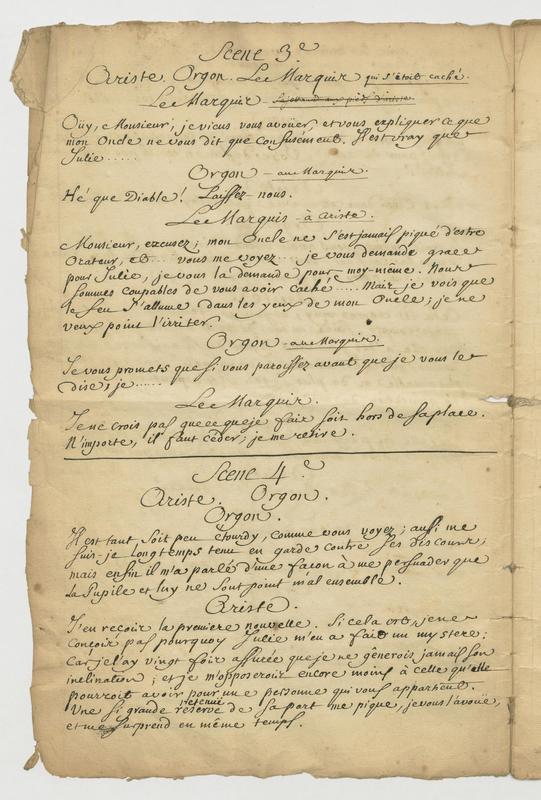 Scene 3.e
Ariste. Orgon. Le Marquis qui s'étoit caché.
Le Marquis se jettant aux pieds d'Ariste
Oüy, Monsieur; je viens vous avoüer, et vous expliquer ce que
mon Oncle ne vous dit que confusément. Il est vray que
Julie......
Orgon — au Marquis.
Hé que Diable! Laissez-nous.
Le Marquis — à Ariste.
Monsieur, excusez; mon Oncle ne s'est jamais piqué d'estre
Orateur, et... vous me voyez... je vous demande grace
pour Julie, je vous la demande pour moy-même. Nous
sommes coupables de vous avoir caché..... Mais je vois que
le feu s'allume dans les yeux de mon Oncle; je ne
veux point l'irriter.
Orgon — au Marquis.
Je vous promets que si vous paroissez avant que je vous le
dise, je......
Le Marquis.
Je ne crois pas que ce que je fais soit hors de sa place.
N'importe, il faut céder; je me retire.
Scene 4.e
Ariste. Orgon.
Orgon.
Il est tant soit peu étourdy, comme vous voyez; aussi me
suis-je longtemps tenu en garde contre ses discours;
mais enfin il m'a parlé d'une façon à me persuader que
la Pupile et luy ne sont point mal ensemble.
Ariste.
J'en reçois la premiere nouvelle. Si cela est, je ne
conçois pas pourquoy Julie m'en a fait un mystere;
Car je l'ay vingt fois assurée que je ne gênerois jamais son
inclination; et je m'opposerois encore moins à celle qu'elle
pourroit avoir pour une personne qui vous appartient.
retenüe
Une si grande réserve de sa part me pique, je vous l'avoüe,
et me surprend en même temps.